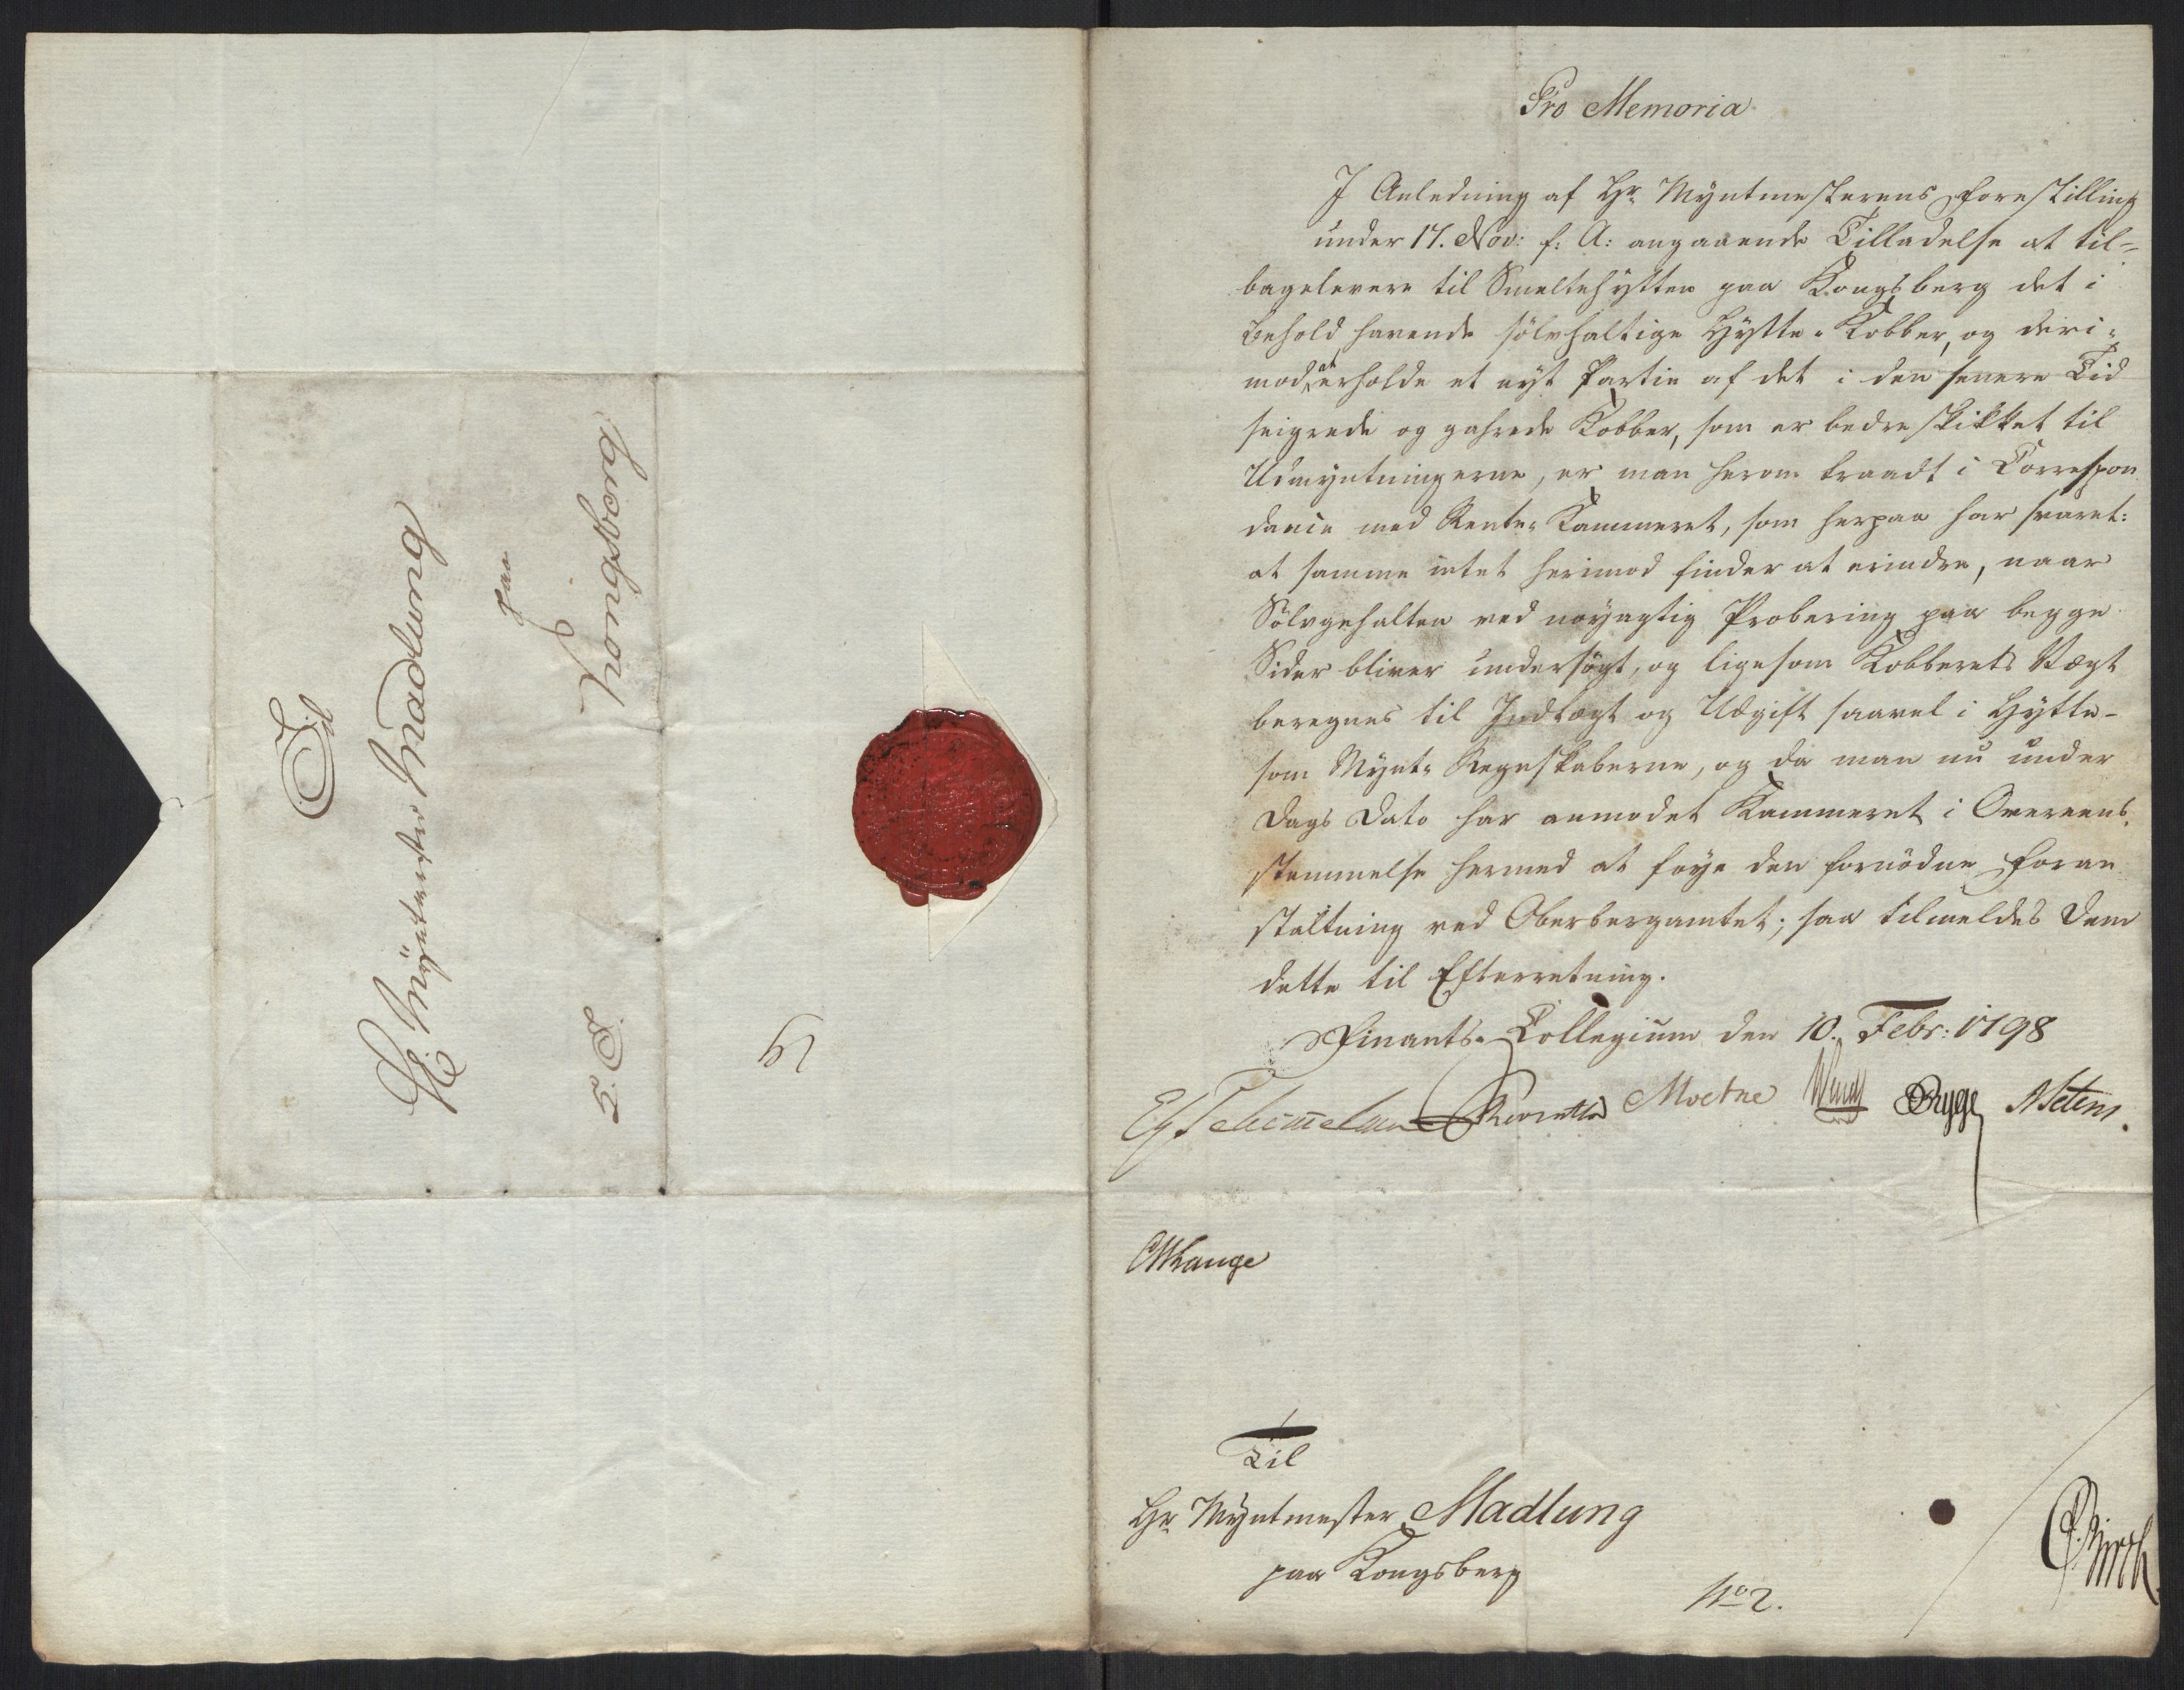 Til
Hr. Myntmester Madlung
paa
Kongsberg
K. T.
Pro Memoria
I Anledning af Hr. Myntmesterens Forestilling
under 17. Nov: f: A: angaaende Tilladelse at til-
bagelevere til Smeltehytten paa Kongsberg det i
Behold havende sölvholtige Hytte-Kobber, og deri-
mod at erholde et nyt Partie af det i den senere Tid
seigrede og gahrede Kobber, som er bedre skikket til
Udmyntningerne, er man herom traadt i Correspon
dance med Rente-Kammeret, som herpaa har svaret:
at samme intet herimod finder at erindre, naar
Sölvgehalten ved nöyagtig Probering paa begge
Sider bliver undersögt, og ligesom Kobberets Vægt
beregnes til Indtægt og Udgift saavel i Hytte-
som Mynt-Regnskaberne, og da man nu under
Dags Dato har anmodet Kammeret i Overeens-
stemmelse hermed at föye den fornödne Foran
staltning ved Oberbergamtet; saa tilmeldes Dem
dette til Efterretning.
Finants-Collegium den 10. Febr: 1798
Schimmelmann Moetne Wendt Bygge
Lange
Til
Hr. Myntmester Madlung
paa Kongsberg
No 2.